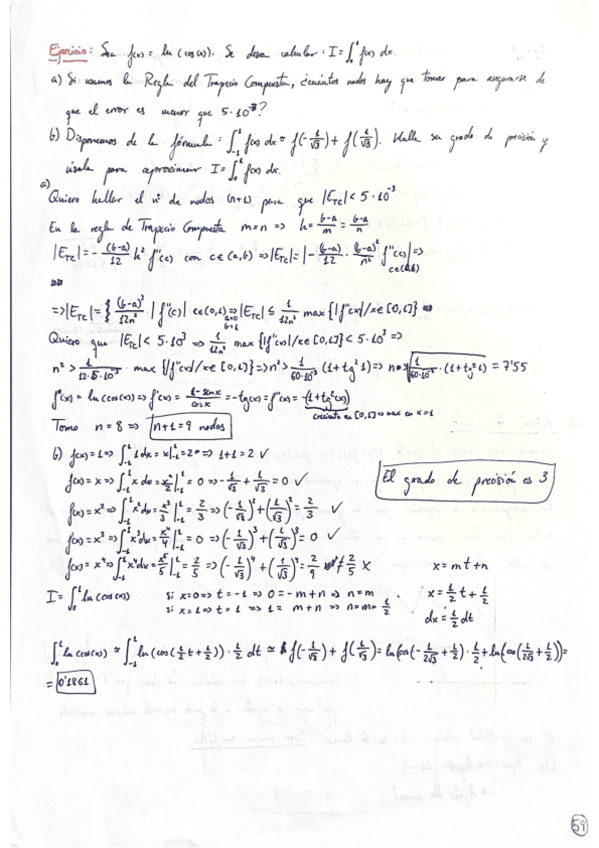 Ejercicio: Sea f(x) = ln(cos(x)). Se desea calcular: I = ∫₀¹ f(x) dx.
a) Si usamos la Regla del Trapecio Compuesta, ¿cuántos nodos hay que tomar para asegurarse de
que el error es menor que 5·10⁻³?
b) Disponemos de la fórmula: ∫₋₁¹ f(x) dx ≃ f(-1/√3) + f(1/√3). Halla su grado de precisión y
úsala para aproximar I = ∫₀¹ f(x) dx.
a)
Quiero hallar el nº de nodos (n+1) para que |E_TC| < 5·10⁻³
En la regla de Trapecio Compuesta m=n => h = (b-a)/m = (b-a)/n
|E_TC| = -(b-a)/12 h² f''(c) con c∈(a,b) => |E_TC| = |-(b-a)/12 · (b-a)²/n² f''(c)| => c∈(a,b)
=> |E_TC| = (b-a)³/12n² |f''(c)| c∈(0,1) => a=0 b=1 |E_TC| ≤ 1/12n² max{|f''(x)|/x∈[0,1]}
Quiero que |E_TC| < 5·10⁻³ => 1/12n² max{|f''(x)|/x∈[0,1]} < 5·10⁻³ =>
n² > 1/(12·5·10⁻³) · max{|f''(x)|/x∈[0,1]} => n² > 1/(60·10⁻³) (1+tg²1) => n > √(1/(60·10⁻³) · (1+tg²1)) = 7'55
f(x) = ln(cos(x)) => f'(x) = (-senx)/cosx = -tg(x) => f''(x) = -(1+tg²(x))
creciente en [0,1] => max en x=1
Tomo n = 8 => n+1 = 9 nodos
b) f(x)=1 => ∫₋₁¹ 1dx = x|₋₁¹ = 2 => 1+1 = 2 ✓
El grado de precisión es 3
f(x)=x => ∫₋₁¹ x dx = x²/2|₋₁¹ = 0 => -1/√3 + 1/√3 = 0 ✓
f(x)=x² => ∫₋₁¹ x²dx = x³/3|₋₁¹ = 2/3 => (-1/√3)² + (1/√3)² = 2/3 ✓
f(x)=x³ => ∫₋₁¹ x³dx = x⁴/4|₋₁¹ = 0 => (-1/√3)³ + (1/√3)³ = 0 ✓
f(x)=x⁴ => ∫₋₁¹ x⁴dx = x⁵/5|₋₁¹ = 2/5 => (-1/√3)⁴ + (1/√3)⁴ = 2/9 ≠ 2/5 X x = mt+n
I = ∫₀¹ ln(cos(x)) si x=0 => t=-1 => 0 = -m+n => n=m x = 1/2 t + 1/2
si x=1 => t=1 => 1 = m+n => n=m=1/2 dx = 1/2 dt
∫₀¹ ln(cos(x)) ≃ ∫₋₁¹ ln(cos(1/2 t + 1/2)) · 1/2 dt ≃ f(-1/√3) + f(1/√3) = ln(cos(-1/2√3 + 1/2)) · 1/2 + ln(cos(1/2√3 + 1/2)) =
= 0'1861
59